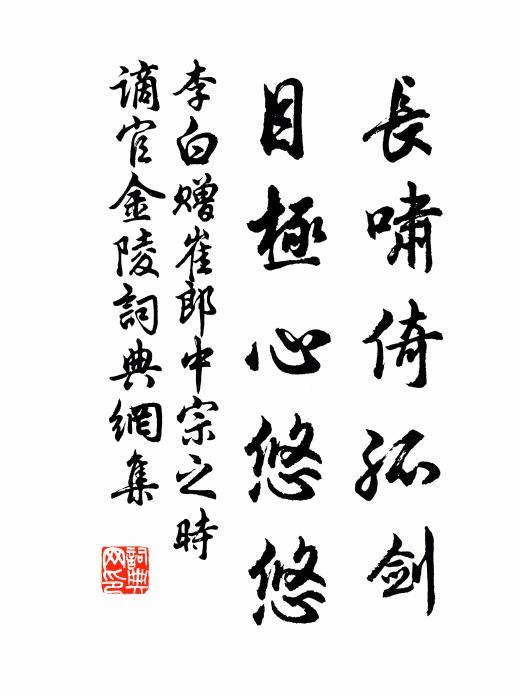 長嘯倚孤剑
目極心悠悠
李白赠崔郎中宗之時
謫官金陵詞典網集
詞典网印